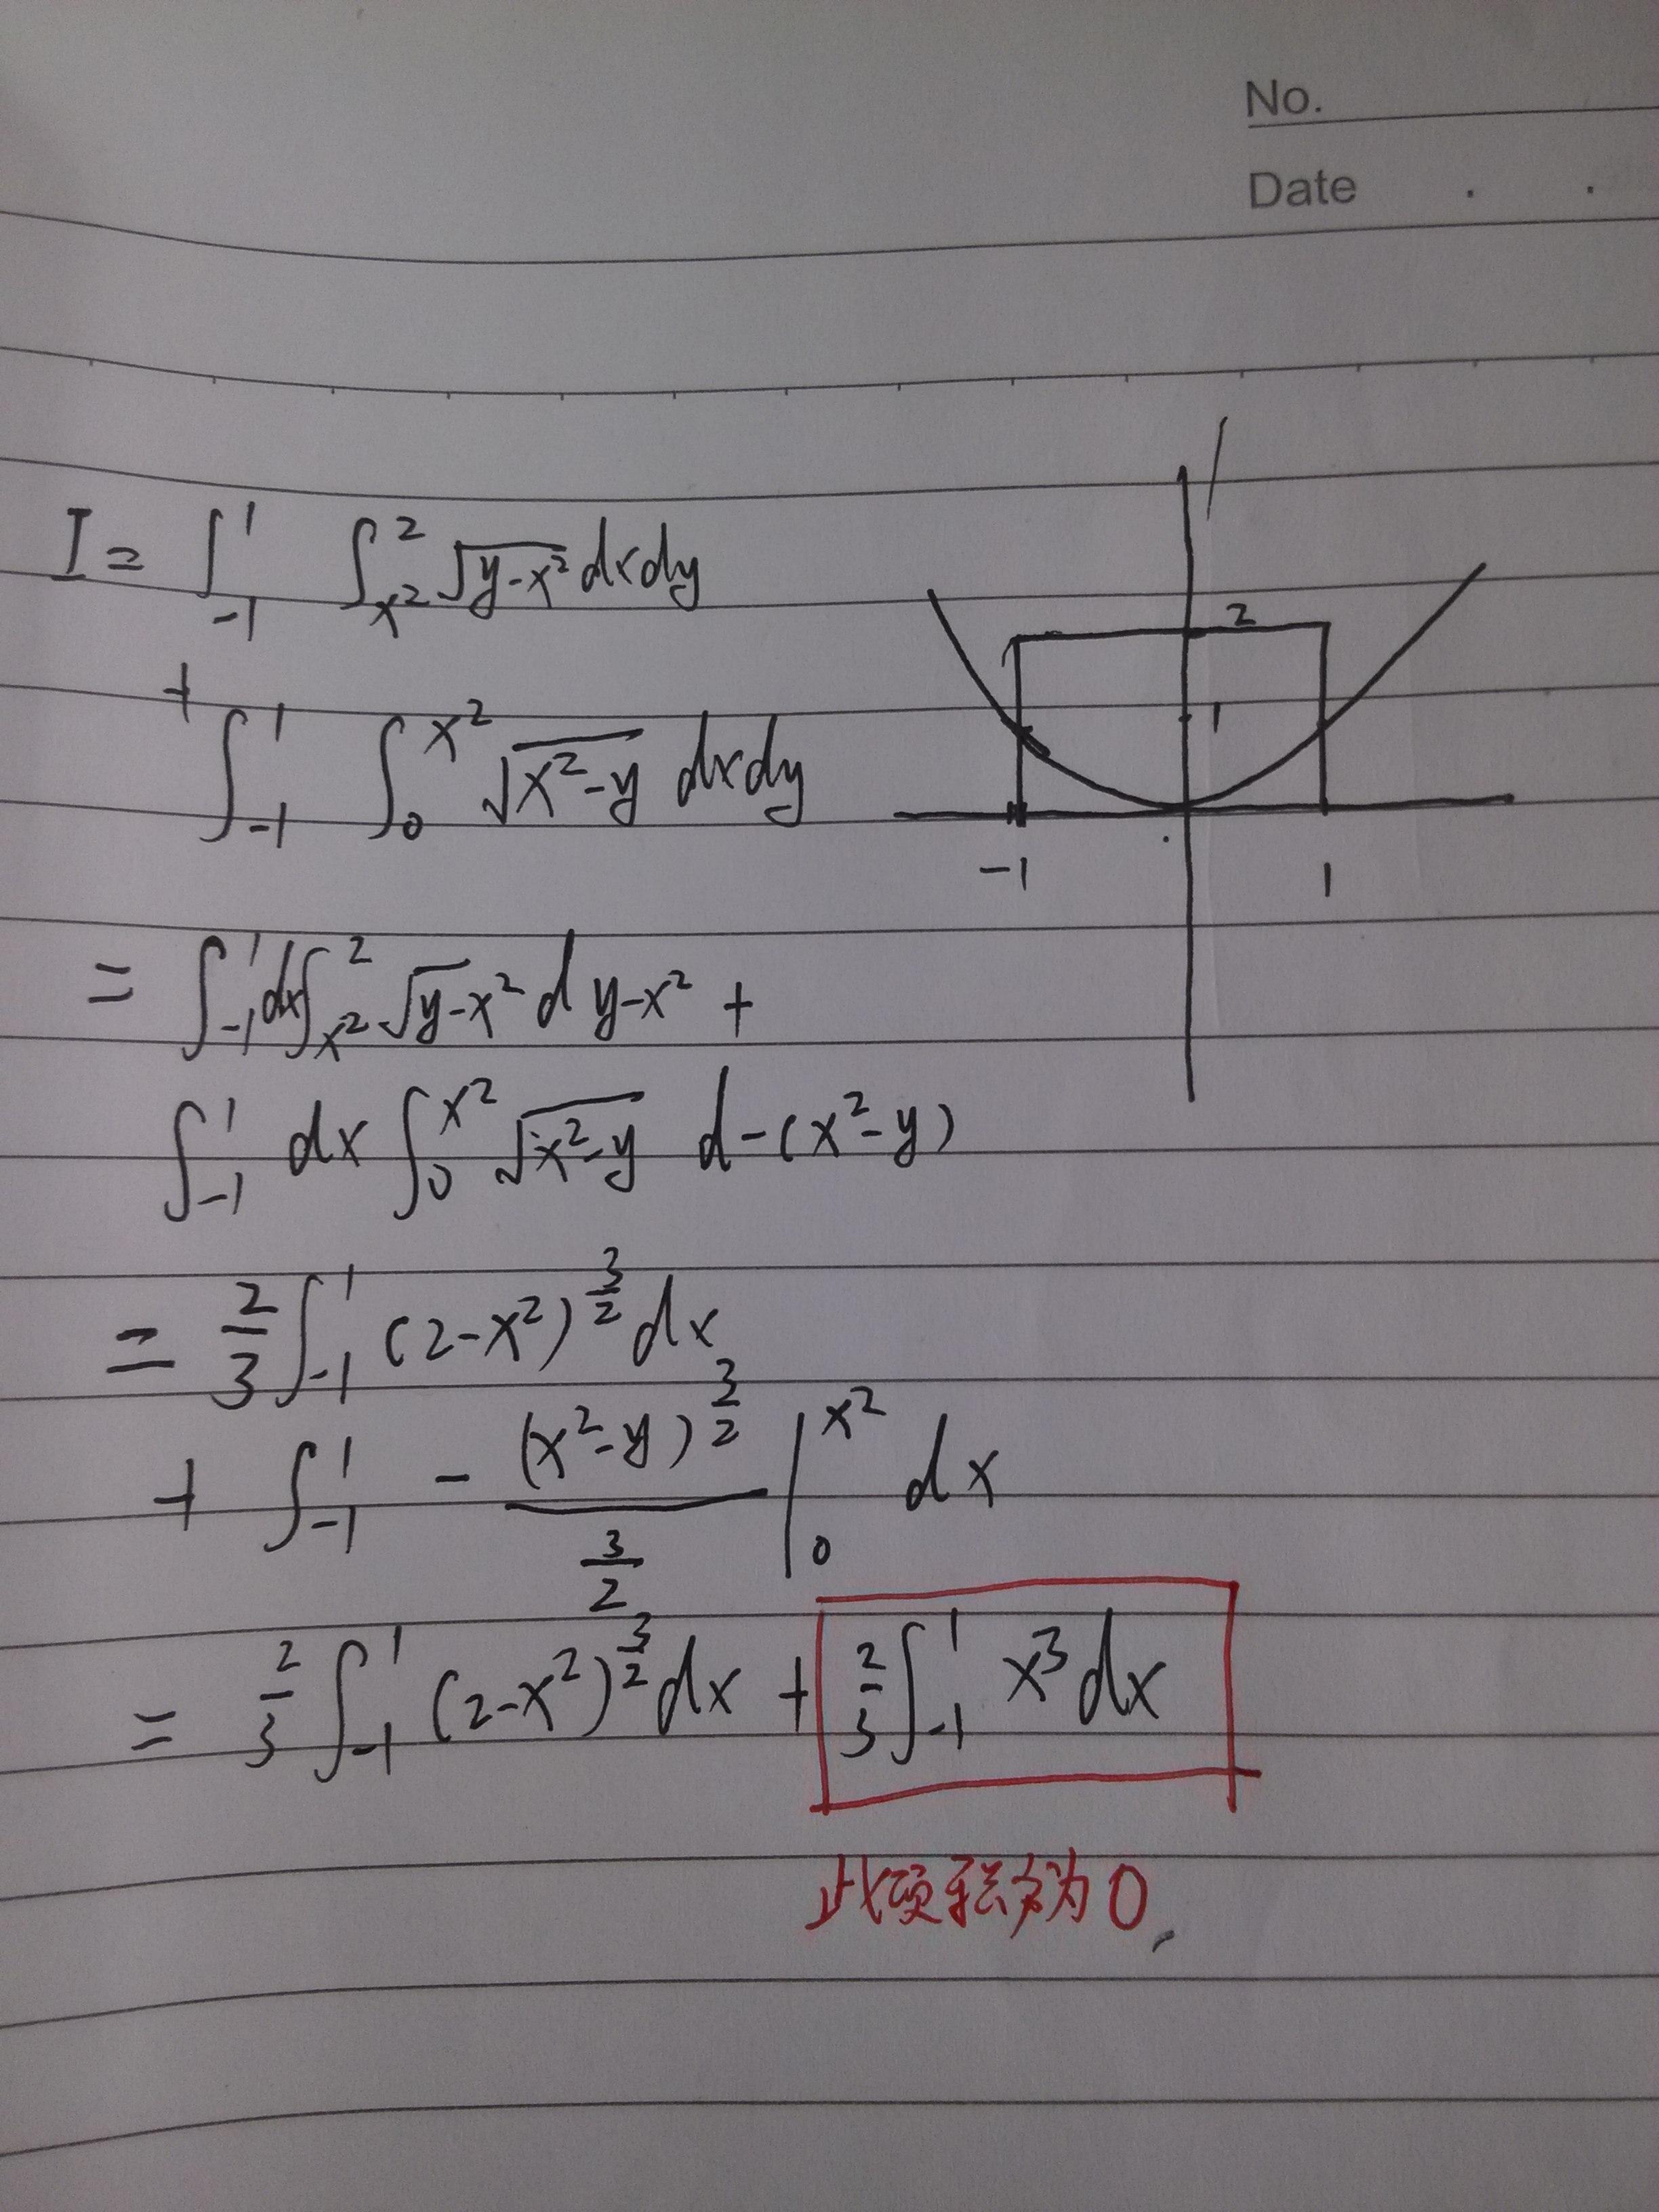 No.
Date . .
I = ∫_{-1}^{1} ∫_{x²}^{2} √(y-x²) dxdy
+ ∫_{-1}^{1} ∫_{0}^{x²} √(x²-y) dxdy
2
1
-1 1
= ∫_{-1}^{1} dx ∫_{x²}^{2} √y-x² d y-x² +
∫_{-1}^{1} dx ∫_{0}^{x²} √(x²-y) d-(x²-y)
= 2/3 ∫_{-1}^{1} (2-x²)^{3/2} dx
+ ∫_{-1}^{1} - (x²-y)^{3/2} / (3/2) |_{0}^{x²} dx
= 2/3 ∫_{-1}^{1} (2-x²)^{3/2} dx + 2/3 ∫_{-1}^{1} x³ dx
此项积分为0.